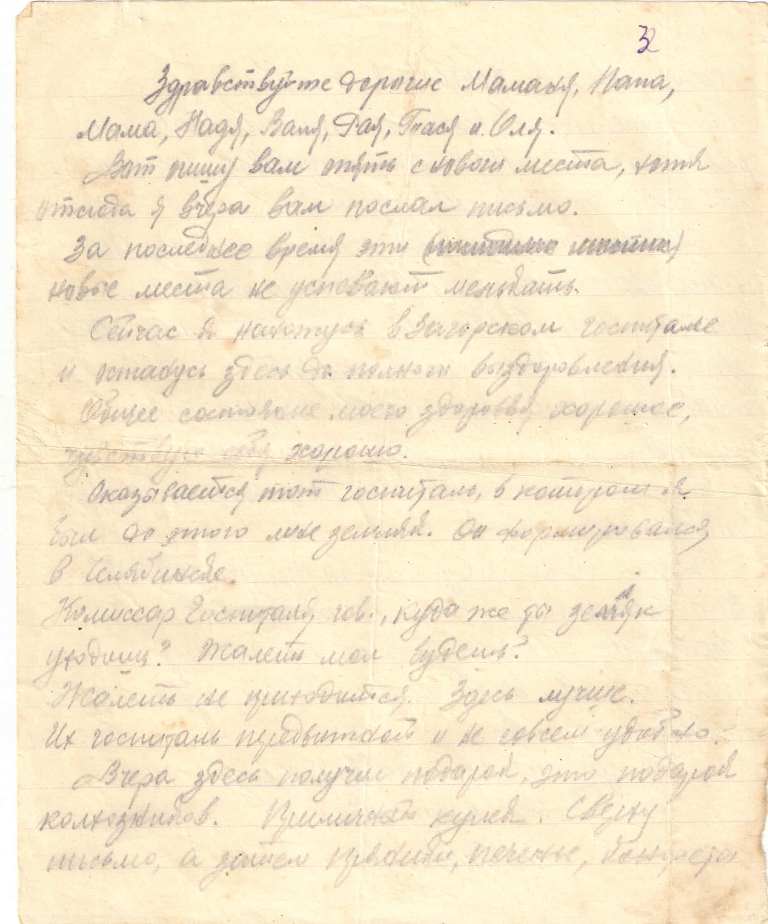 32
Здравствуйте дорогие Маманя, Папа,
Мама, Надя, Валя, Рая, Тася и Оля.
Вот пишу вам опять с нового места, хотя
отсюда я вчера вам послал письмо.
За последнее время эти
новые места не успевают меньдать.
Сейчас я нахожусь в Загорском госпитале
и останусь здесь до полного выздоровления.
Общее состояние моего здоровья хорошее,
чувствую себя хорошо.
Оказывается тот госпиталь, в котором я
был до этого мне земляк. Он формировался
в Челябинске.
Комиссар Госпиталя, гов., куда же ты земляк
уходишь? Жалеть мол будешь?
Жалеть не приходится. Здесь лучше.
Их госпиталь передвижной и не совсем удобно.
Вчера здесь получил подарок, это подарок
колхозников. Приличный кулёк. Сверху
письмо, а затем пряники, печенье, конфеты